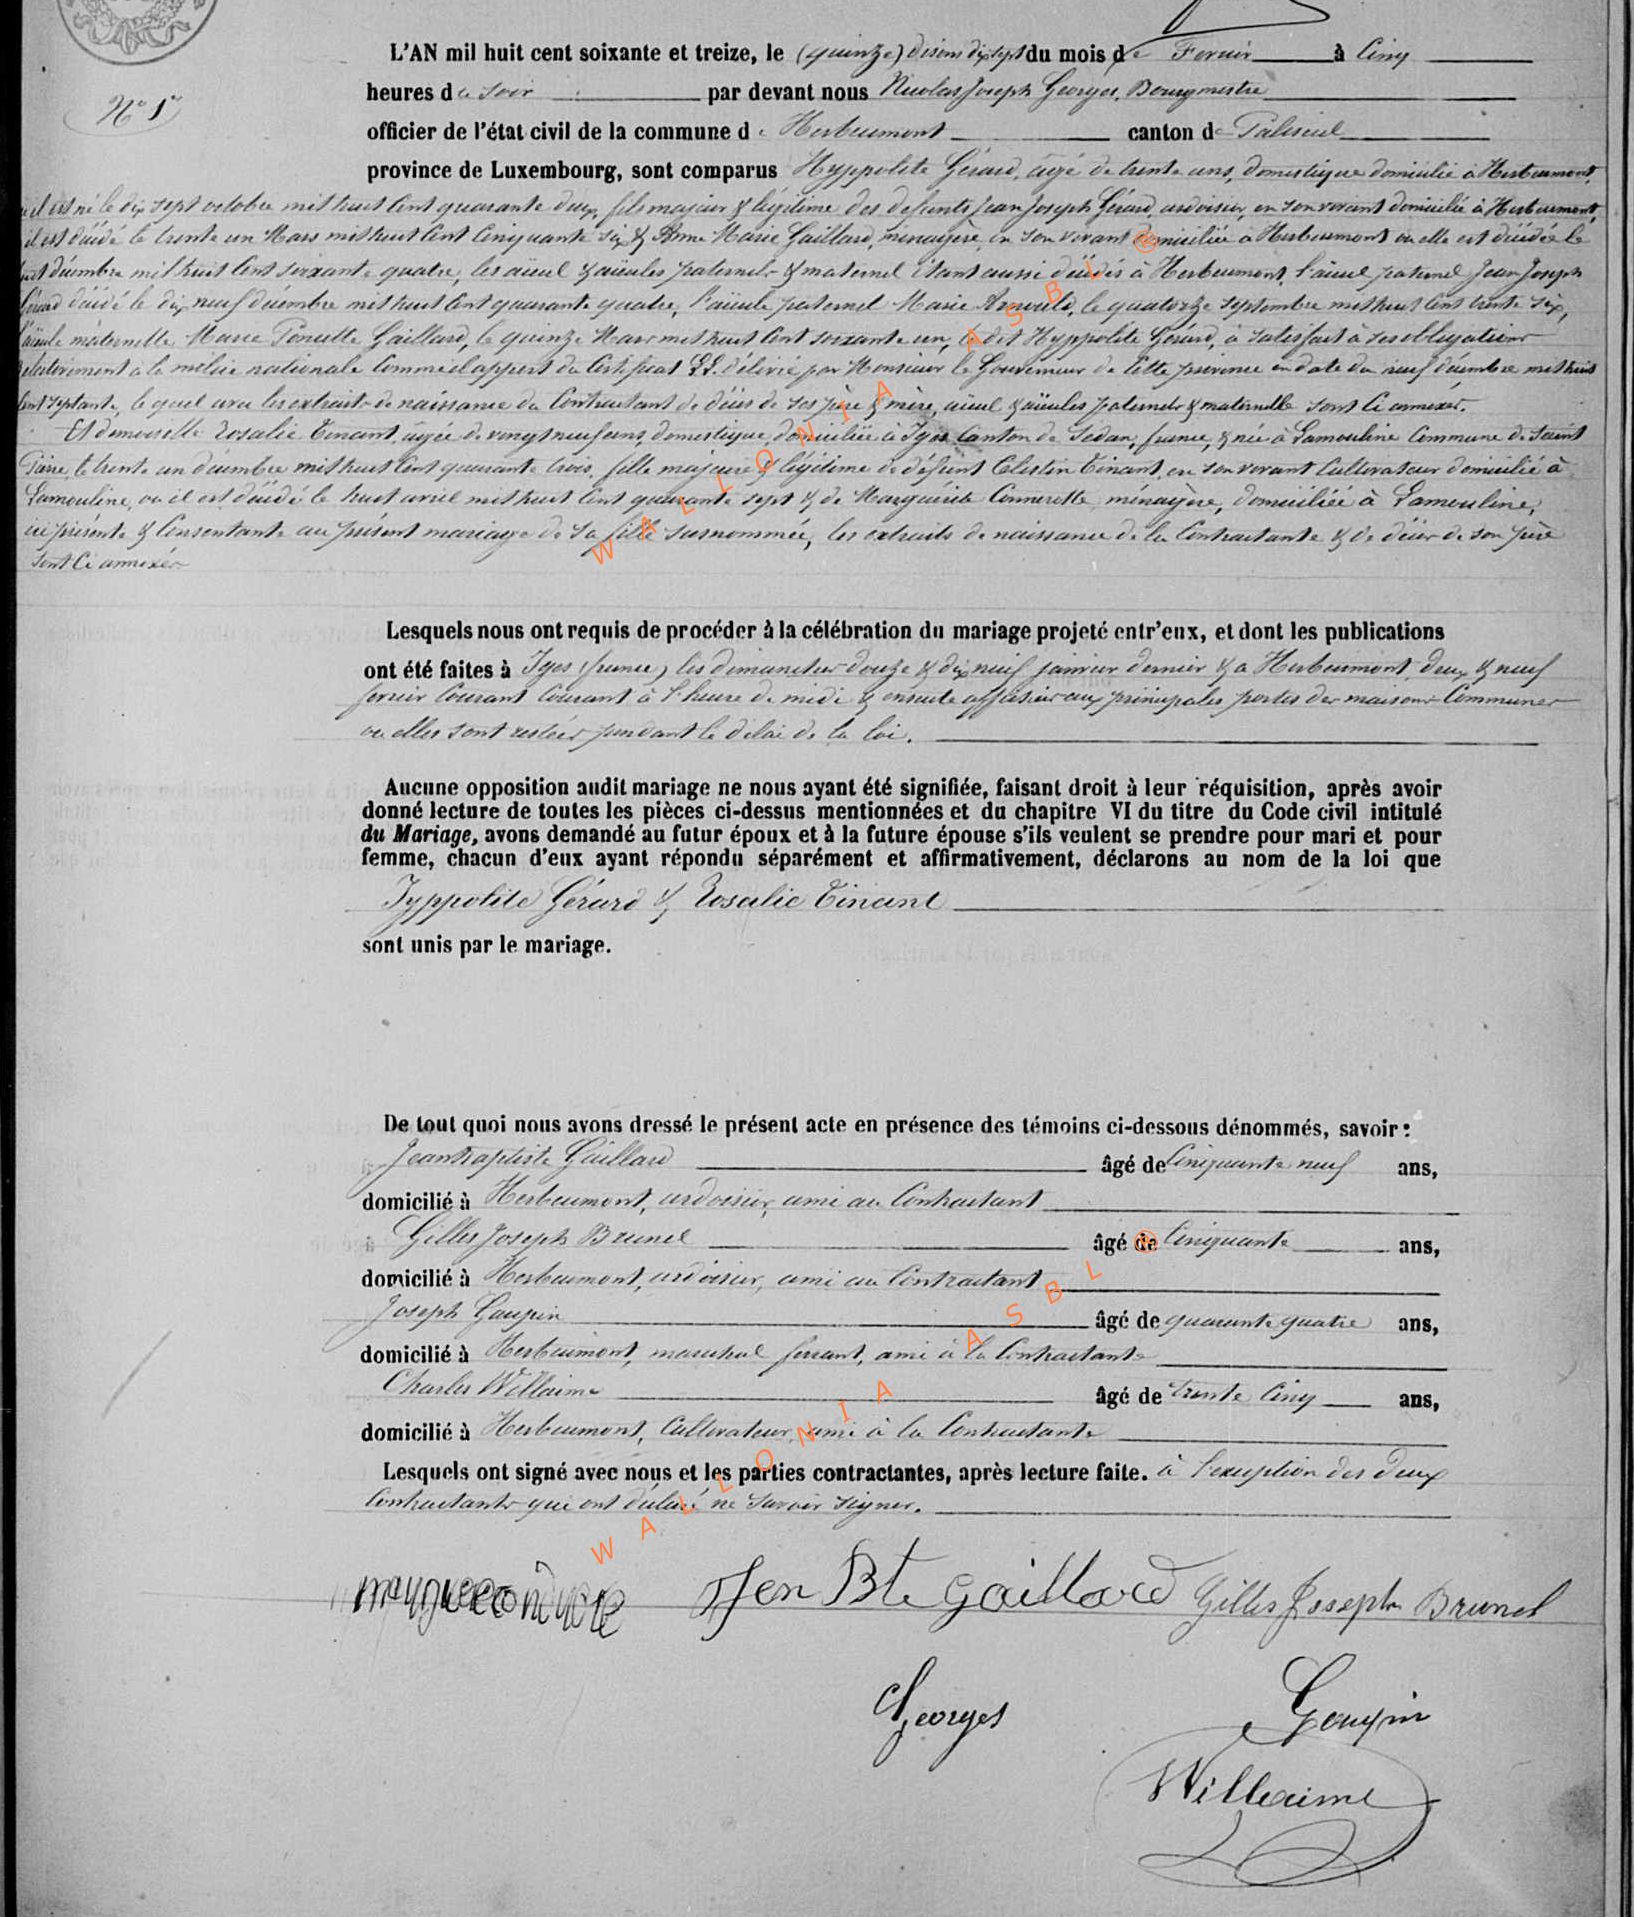 N° 1er
L'AN mil huit cent soixante et treize, le (quinze) disons dix sept du mois de Fevrier à Cinq
heures du soir par devant nous Nicolas Joseph Georges, Bourgmestre
officier de l'état civil de la commune de Herbeumont canton de Paliseul
province de Luxembourg, sont comparus Hyppolite Gérard, âgé de trente ans, domestique domicilié à Herbeumont,
il est né le dix sept octobre mil huit Cent quarante deux, fils majeur & légitime des defunts Jean Joseph Gérard, ardoisier, en son vivant domicilié à Herbeumont,
il est décédé le trente un Mars mil huit Cent Cinquante six & Anne Marie Gaillard, ménagère, en son vivant domiciliée à Herbeumont où elle est décédée le
huit décembre mil huit Cent soixante quatre, les aïeul & aïeules paternels & maternel étant aussi décédés à Herbeumont, l'aïeul paternel Jean Joseph
Gérard décédé le dix neuf décembre mil huit Cent quarante quatre, l'aïeule paternel Marie Arnould, le quatorze septembre mil huit Cent trente six,
l'aïeule maternelle Marie Gaillard, le quinze Mars mil huit Cent soixante un, le dit Hyppolite Gérard, à satisfait à ses obligations
relativement à la milice nationale Comme il appert du Certificat délivré par Monsieur le Gouverneur de Cette province en date du neuf décembre mil huit
Cent septante, le quel avec les extraits de naissance du Contractant de décès de ses père & mère, aïeul & aïeules paternels & maternelle sont Ci annexés.
Et demoiselle Rosalie Tinant, âgée de vingt neuf ans, domestique, domiciliée à Iges Canton de Sedan, france, & née à Lamouline Commune de Saint
Pierre, le trente un décembre mil huit Cent quarante trois, fille majeure & légitime de défunt Célestin Tinant, en son vivant Cultivateur domicilié à
Lamouline, ou il est décédé le huit avril mil huit Cent quarante sept & de Marguérite Connerotte, ménagère, domiciliée à Lamouline,
ici présente & Consentante au présent mariage de sa fille susnommée, les extraits de naissance de la Contractante & de décès de son père
sont Ci annexés
Lesquels nous ont requis de procéder à la célébration du mariage projeté entr'eux, et dont les publications
ont été faites à Iges (france) les dimanches douze & dix neuf janvier dernier & à Herbeumont, deux & neuf
fevrier Courant Courant à l'heure de midi & ensuite affichées aux principales portes des maisons Communes
ou elles sont restées pendant le délai de la loi.
Aucune opposition audit mariage ne nous ayant été signifiée, faisant droit à leur réquisition, après avoir
donné lecture de toutes les pièces ci-dessus mentionnées et du chapitre VI du titre du Code civil intitulé
du Mariage, avons demandé au futur époux et à la future épouse s'ils veulent se prendre pour mari et pour
femme, chacun d'eux ayant répondu séparément et affirmativement, déclarons au nom de la loi que
Hyppolite Gérard & Rosalie Tinant
sont unis par le mariage.
De tout quoi nous avons dressé le présent acte en présence des témoins ci-dessous dénommés, savoir :
Jean Baptiste Gaillard âgé de Cinquante neuf ans,
domicilié à Herbeumont, ardoisier, ami au Contractant
Gilles Joseph Brunel âgé de Cinquante ans,
domicilié à Herbeumont, ardoisier, ami au Contractant
Joseph Goupin âgé de quarante quatre ans,
domicilié à Herbeumont, marechal ferrant, ami à la Contractante
Charles Willaime âgé de trente Cinq ans,
domicilié à Herbeumont, Cultivateur, ami à la Contractante
Lesquels ont signé avec nous et les parties contractantes, après lecture faite. à l'exception des deux
Contractants qui ont déclaré ne savoir signer.
Jen Bte gaillard Gilles Joseph Brunel
Georges Goupin
Willaime
WALLONIA ASBL ®
WALLONIA ASBL ®